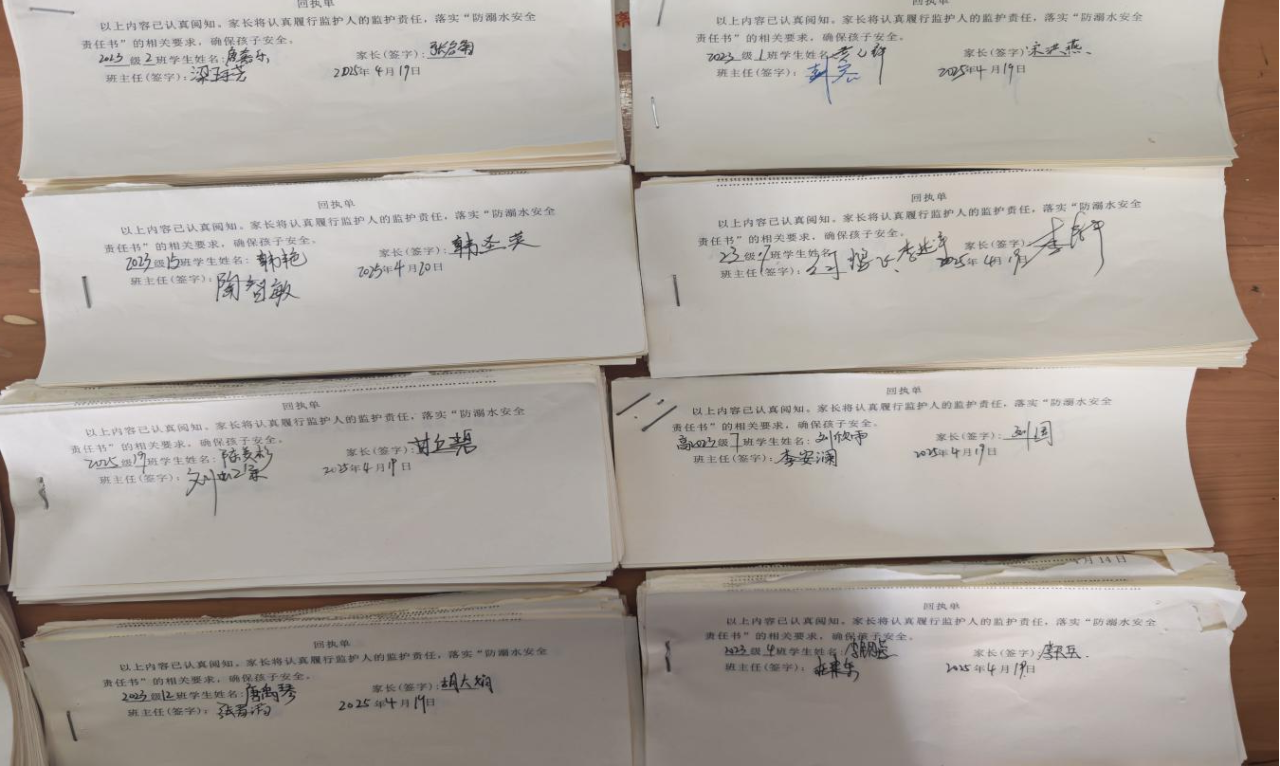 回执单
以上内容已认真阅知。家长将认真履行监护人的监护责任，落实“防溺水安全
责任书”的相关要求，确保孩子安全。
2023级2班学生姓名： 家长(签字)：
班主任(签字)： 2025年4月19日
回执单
以上内容已认真阅知。家长将认真履行监护人的监护责任，落实“防溺水安全
责任书”的相关要求，确保孩子安全。
2023级1班学生姓名： 家长(签字)：宋洪燕
班主任(签字)：彭宏 2025年4月19日
回执单
以上内容已认真阅知。家长将认真履行监护人的监护责任，落实“防溺水安全
责任书”的相关要求，确保孩子安全。
2023级15班学生姓名：韩艳 家长(签字)：韩丞英
班主任(签字)：陶智敏 2025年4月20日
回执单
以上内容已认真阅知。家长将认真履行监护人的监护责任，落实“防溺水安全
责任书”的相关要求，确保孩子安全。
23级 班学生姓名 家长(签字)：
班主任(签字)： 2025年4月19日
回执单
以上内容已认真阅知。家长将认真履行监护人的监护责任，落实“防溺水安全
责任书”的相关要求，确保孩子安全。
2025级19班学生姓名： 家长(签字)：
班主任(签字)： 2025年4月19日
回执单
以上内容已认真阅知。家长将认真履行监护人的监护责任，落实“防溺水安全
责任书”的相关要求，确保孩子安全。
高2023级7班学生姓名：刘欣雨 家长(签字)：刘国
班主任(签字)：李安澜 2025年4月19日
月14日
回执单
以上内容已认真阅知。家长将认真履行监护人的监护责任，落实“防溺水安全
责任书”的相关要求，确保孩子安全。
2023级12班学生姓名：唐禹琴 家长(签字)：
班主任(签字)： 2025年4月19日
回执单
以上内容已认真阅知。家长将认真履行监护人的监护责任，落实“防溺水安全
责任书”的相关要求，确保孩子安全。
2023级4班学生姓名： 家长(签字)：
班主任(签字)： 2025年4月19日